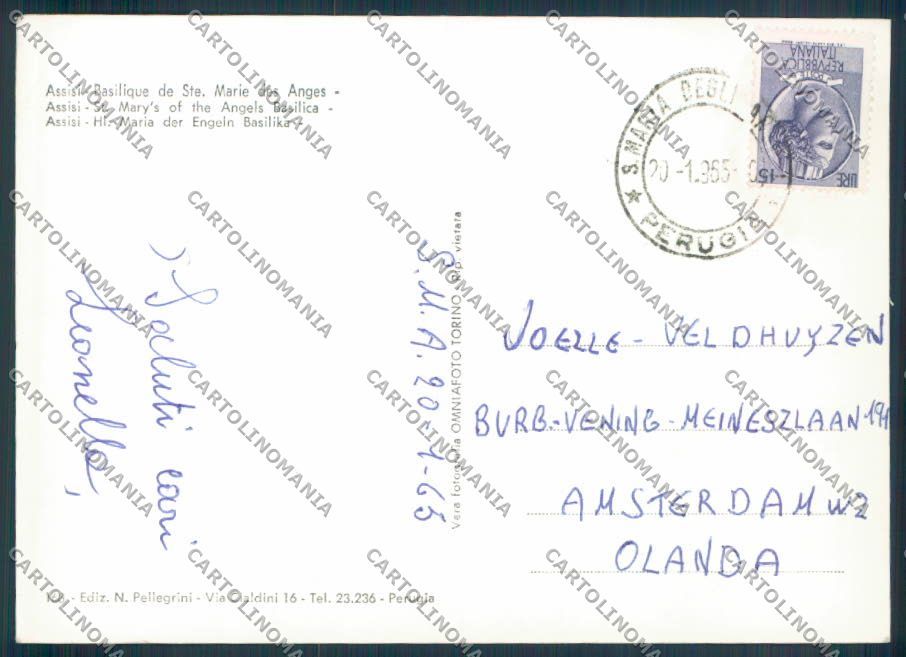 Assisi - Basilique de Ste. Marie des Anges -
Assisi - St. Mary's of the Angels Basilica -
Assisi - Hl. Maria der Engeln Basilika -
REPVBBLICA
ITALIANA
POSTE
LIRE 15
S. MARIA DEGLI
20 -1.965
★ PERUGIA
Saluti cari
Leonello,
S.M.A. 20-1-65
Vera fotografia OMNIAFOTO TORINO - Rip. vietata
JOELLE - VELDHUYZEN
BURB.-VENING-MEINESZLAAN
AMSTERDAM W2
OLANDA
- Ediz. N. Pellegrini - Via Cialdini 16 - Tel. 23.236 - Perugia
CARTOLINOMANIA